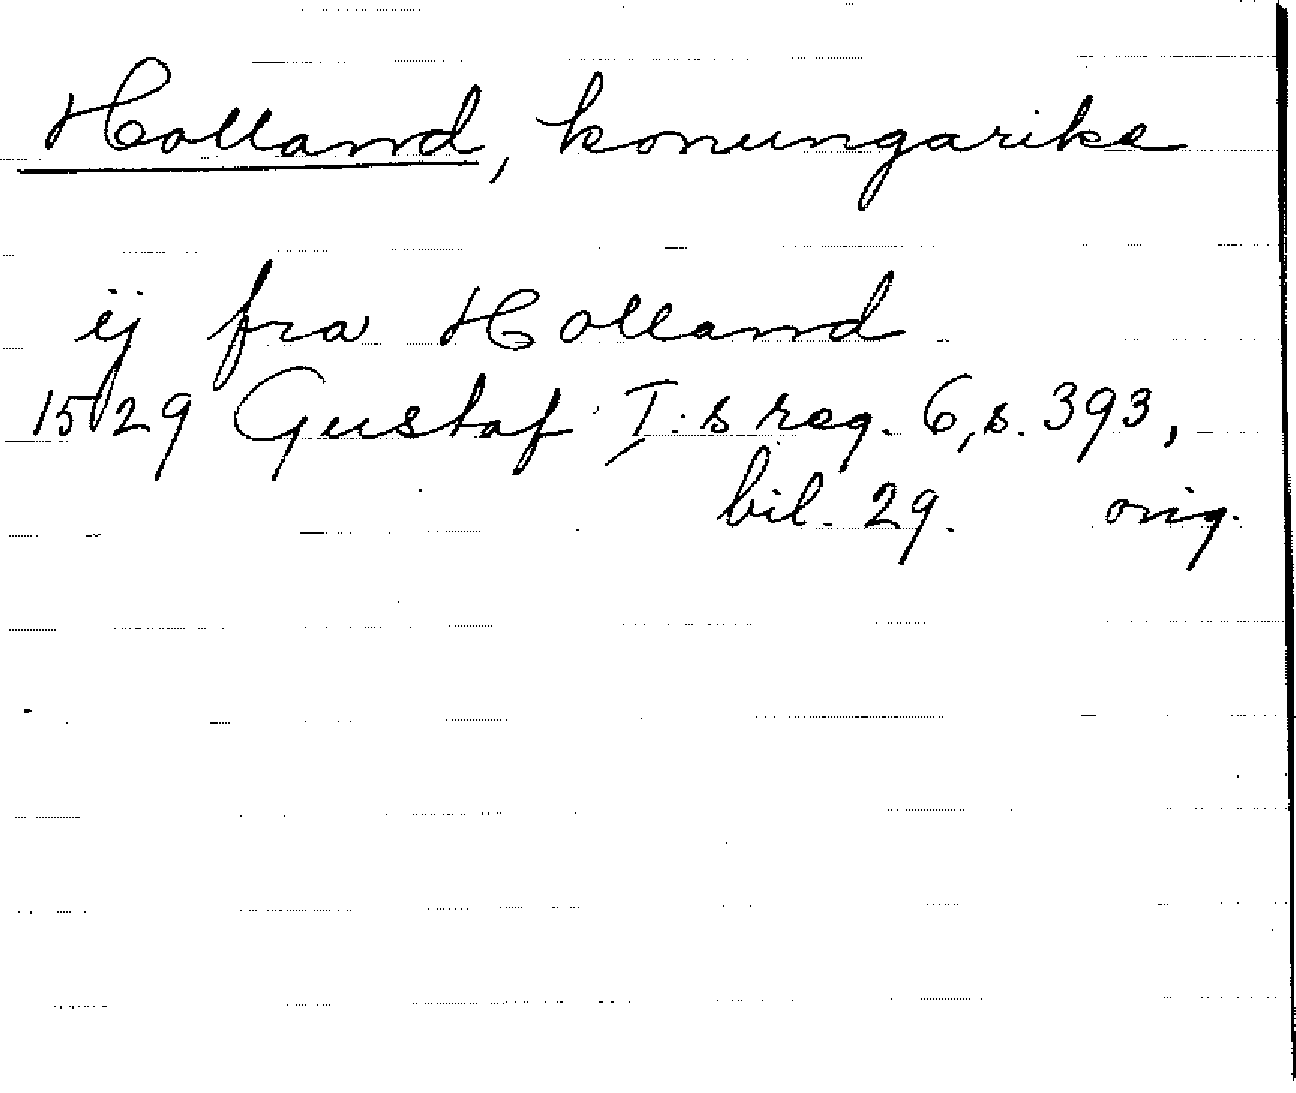 Holland, konungarike
ij fra Holland
1529 Gustaf I:s reg. 6, s. 393,
bil. 29. orig.